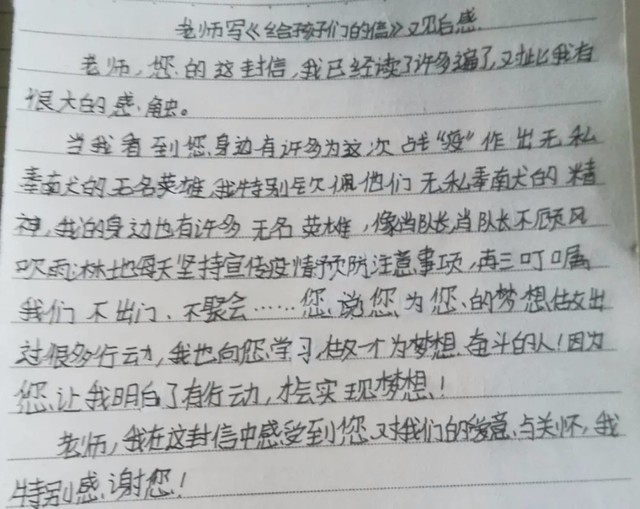 老师写《给孩子们的信》观后感
老师,您的这封信,我已经读了许多遍了,对此我有
很大的感触。
当我看到您身边有许多为这次战“疫”作出无私
奉献的无名英雄,我特别钦佩他们无私奉献的精
神,我的身边也有许多无名英雄,像当队长,肖队长不顾风
吹雨淋地每天坚持宣传疫情预防注意事项,再三叮嘱
我们不出门、不聚会……您说您为您的梦想做出
过很多行动,我也向您学习,做一个为梦想奋斗的人!因为
您让我明白了有行动,才会实现梦想!
老师,我在这封信中感受到您对我们的爱意与关怀,我
特别感谢您!